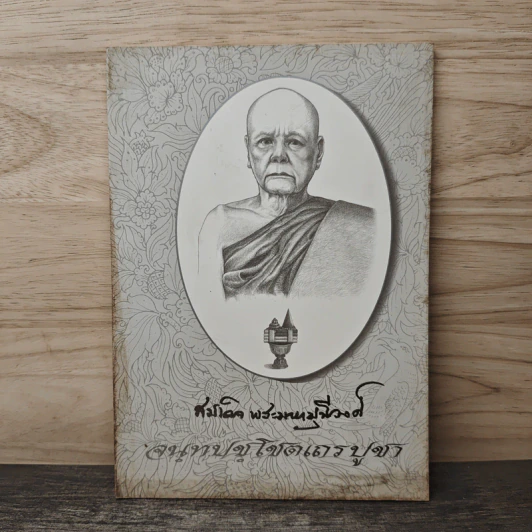 สมเด็จ พระมหามุนีวงศ์
จนฺทปชฺโชตเถรปูชา